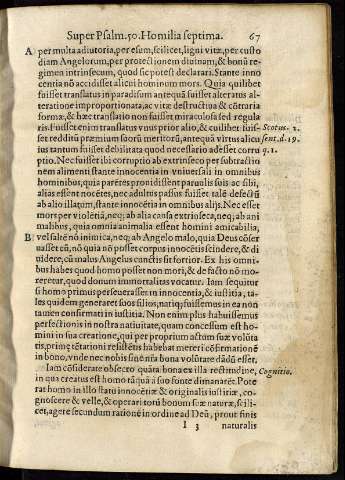 Super Psalm. 50. Homilia septima. 67
A per multa adiutoria, per esum, scilicet, ligni vitæ, per custo
diam Angelorum, per protectionem diuinam, & bonũ re
gimen intrinsecum, quod sic potest declarari. Stante inno
centia nõ accidisset alicui hominum mors. Quia quilibet
fuisset translatus in paradisum antequã fuisset alteratus al-
teratione improportionata, ac vitæ destructiua & cõtraria
formæ, & hæc translatio non fuisset miraculosa sed regula
ris. Fuisset enim translatus vnus prior alio, & cuilibet fuis- Scotus. 2.
set redditũ præmium suorũ meritorũ, antequã virtus alicu sent. d. 19.
ius tantum fuisset debilitata quod necessario adesset corru q. 1.
ptio. Nec fuisset ibi corruptio ab extrinseco per subtractio
nem alimenti stante innocentia in vniuersali in omnibus
hominibus, quia parẽtes prouidissent paruulis suis ac sibi,
alias essent nocẽtes, nec adultus passus fuisset talẽ defectũ
ab alio illatum, stante innocẽtia in omnibus alijs. Nec esset
mors per violẽtiã, neq; ab alia causa extrinseca, neq; ab ani
malibus, quia omnia animalia essent homini amicabilia,
B vel saltẽ nõ inimica, neq; ab Angelo malo, quia Deus cõser
uasset eũ, nõ quia nõ posset corpus innocẽtis scindere, & di
uidere, cũ malus Angelus sanctis sit fortior. Ex his omni-
bus habes quod homo posset non mori, & de facto nõ mo-
reretur, quod donum immortalitas vocatur. Iam sequitur
si homo primus perseuerasset in innocentia, & iustitia, ta-
les quidem generaret suos filios, natiq; fuissemus in ea non
tamen confirmati in iustitia. Non enim plus habuissemus
perfectionis in nostra natiuitate, quam concessum est ho-
mini in sua creatione, qui per proprium actum suæ volũta
tis, primę tẽtationi resistẽs habebat mereri cõfirmationẽ
in bono, vnde nec nobis sine nr̃a bona volũtate dãdũ esset.
Iam cõsiderate obsecro quãta bona ex illa rectitudine, Cognitio.
in qua creatus est homo tã quã à suo fonte dimanarẽt. Pote
rat homo in illo statu innocẽtiæ & originalis iustitiæ, co-
gnoscere & velle, & operari totũ bonum suæ naturæ, scili-
cet, agere secundum rationẽ in ordine ad Deũ, prout finis
I 3 naturalis